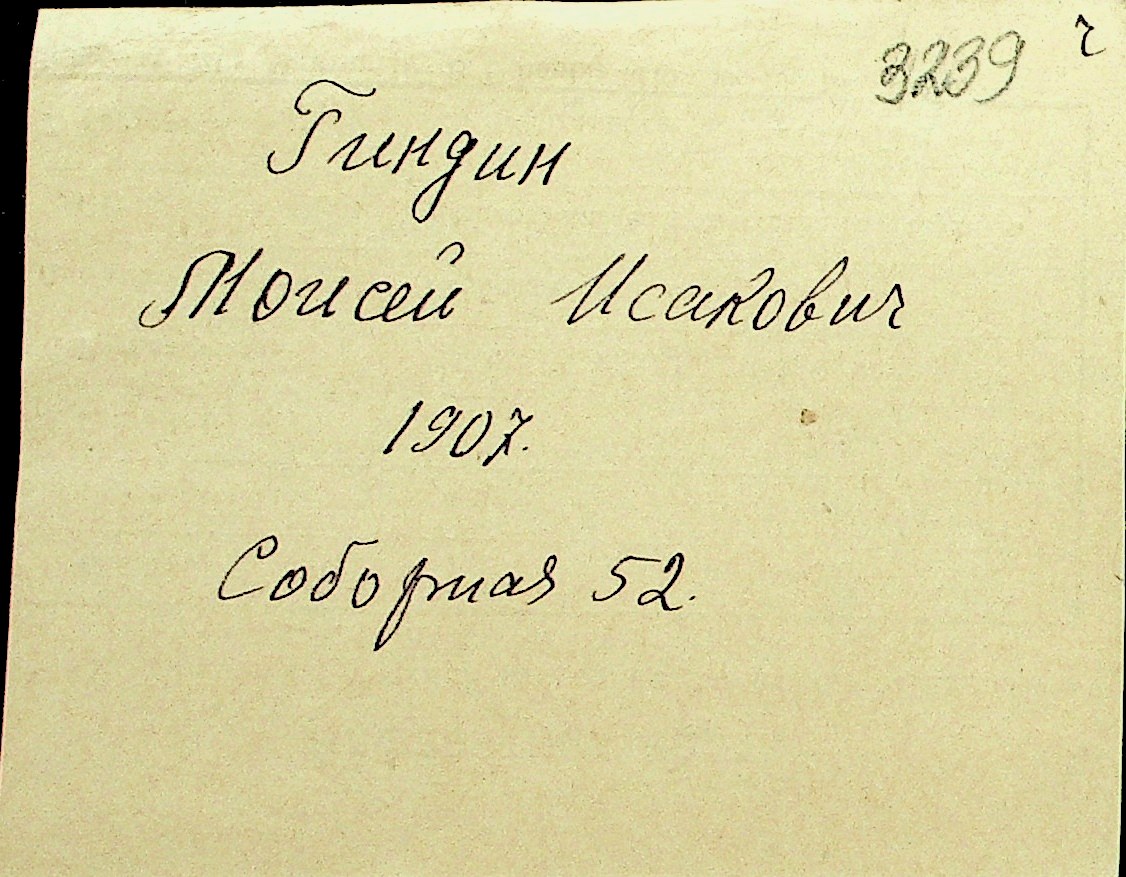 3239 ч
Гиндин
Моисей Исакович
1907.
Соборная 52.